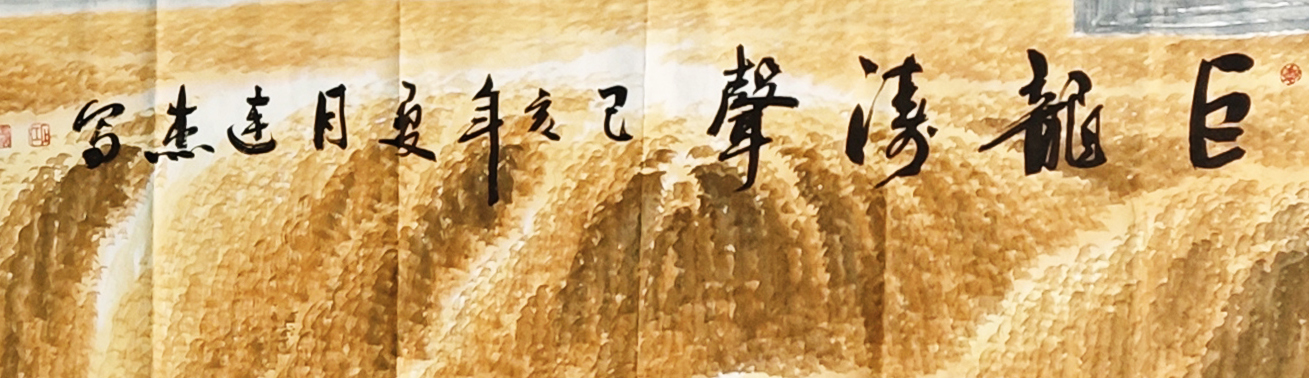 巨龍濤聲
己亥年夏月連杰寫